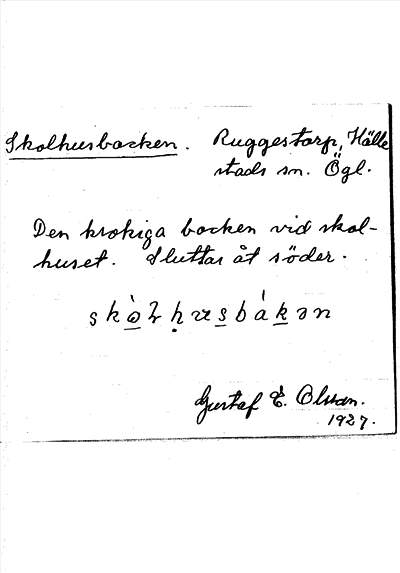 Skolhusbacken. Ruggestorp, Hälle
stads sn. Ögl.
Den krokiga backen vid skol-
huset. Sluttar åt söder.
Gustaf E. Olsson.
1927.